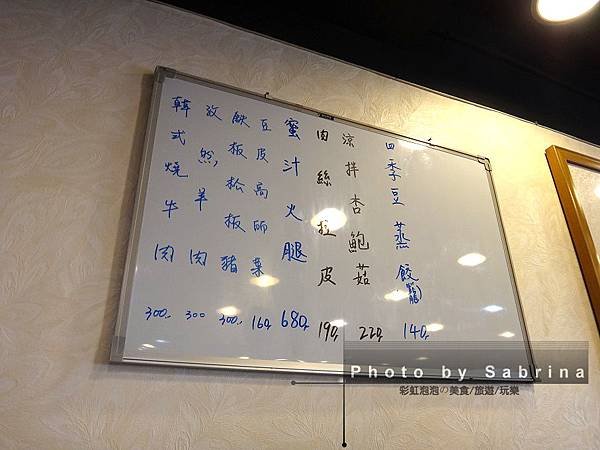 四季豆蒸餃(籠) 140.
涼拌杏鮑菇 220.
肉絲拉皮 190.
蜜汁火腿 680.
豆皮高師菜 160.
鉄板松板豬 300.
孜然羊肉 300
韓式燒牛肉 300.
Photo by Sabrina
彩虹泡泡の美食/旅遊/玩樂